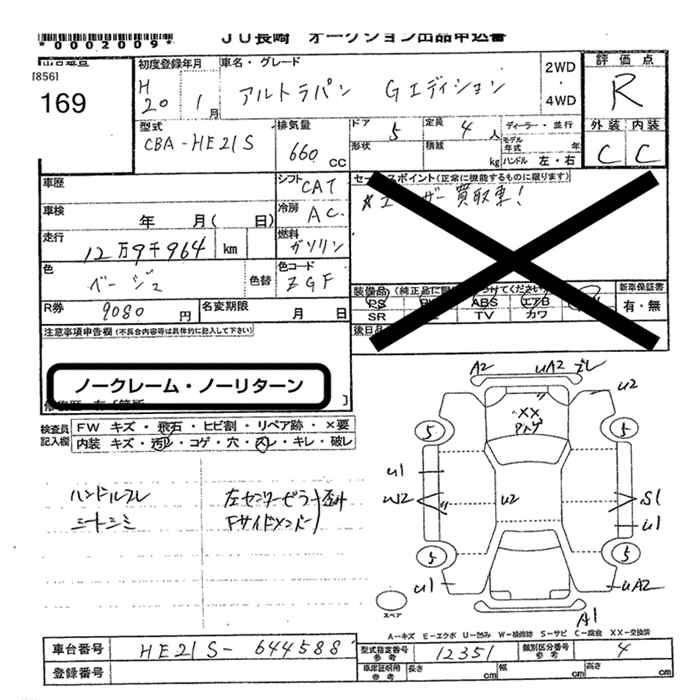 *0002009*
JU長崎 オークション出品申込書
[856]
169
初度登録年月
H
20 1月
車名・グレード
アルトラパン Gエディション
2WD
・
4WD
評価点
R
外装 内装
C C
型式
CBA-HE21S
排気量
660 CC
ドア 5
定員 4人
ディーラー・並行
形状
積載 kg
モデル年式 年
ハンドル 左・右
車歴
シフト CAT
セールスポイント(正常に機能するものに限ります)
ユーザー買取車!
車検
年 月( 日)
冷房 AC
走行
12万9千964 km
燃料 ガソリン
色
ベージュ
色替
色コード
ZGF
装備品
新車保証書
有・無
PS
ABS
エアB
SR
TV
カワ
R券
9080 円
名変期限
月 日
後日品
注意事項申告欄(不具合内容等は具体的に記入して下さい)
ノークレーム・ノーリターン
検査員記入欄
FW キズ・飛石・ヒビ割・リペア跡・×要
内装 キズ・汚れ・コゲ・穴・スレ・キレ・破レ
ハンドルスレ
シートシミ
左センターピラー歪み
A2 UA2
U2
XX
5 5
U1
W2
U2
S1
U1
5 5
U1
UA2
A1
スペア
A―キズ E―エクボ U―凹み W―補修跡 S―サビ C―腐食 XX―交換済
車台番号
HE21S-644588
型式指定番号
参考
12351
類別区分番号
参考
4
登録番号
車庫証明用
参考
長さ cm
幅 cm
高さ cm